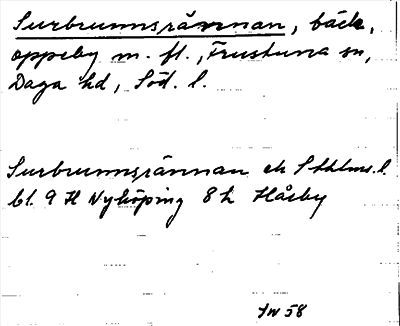 Surbrunnsrännan, bäck,
oppeby m. fl., Frustuna sn,
Daga hd, Söd. l.
Surbrunnsrännan ek Sthlms. l.
bl. 9 H Nyköping 8 h Håsby
IW 58